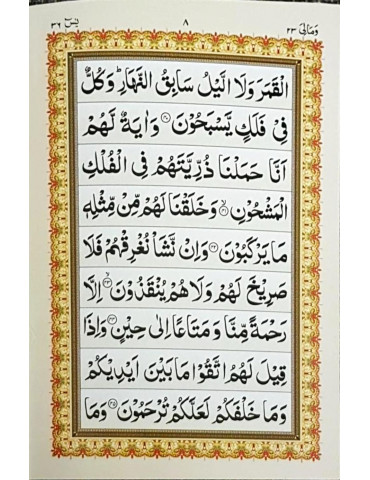 وَمَالِیَ ٢٣ ٨ یٰسٓ ٣٦
الْقَمَرَ وَلَا الَّیْلُ سَابِقُ النَّهَارِ ؕ وَكُلٌّ
فِیْ فَلَكٍ یَّسْبَحُوْنَ ﴿٤٠﴾ وَاٰیَةٌ لَّهُمْ
اَنَّا حَمَلْنَا ذُرِّیَّتَهُمْ فِی الْفُلْكِ
الْمَشْحُوْنِ ﴿٤١﴾ۙ وَخَلَقْنَا لَهُمْ مِّنْ مِّثْلِهٖ
مَا یَرْكَبُوْنَ ﴿٤٢﴾ وَاِنْ نَّشَاْ نُغْرِقْهُمْ فَلَا
صَرِیْخَ لَهُمْ وَلَا هُمْ یُنْقَذُوْنَ ﴿٤٣﴾ۙ اِلَّا
رَحْمَةً مِّنَّا وَمَتَاعًا اِلٰی حِیْنٍ ﴿٤٤﴾ وَاِذَا
قِیْلَ لَهُمُ اتَّقُوْا مَا بَیْنَ اَیْدِیْكُمْ
وَمَا خَلْفَكُمْ لَعَلَّكُمْ تُرْحَمُوْنَ ﴿٤٥﴾ وَمَا